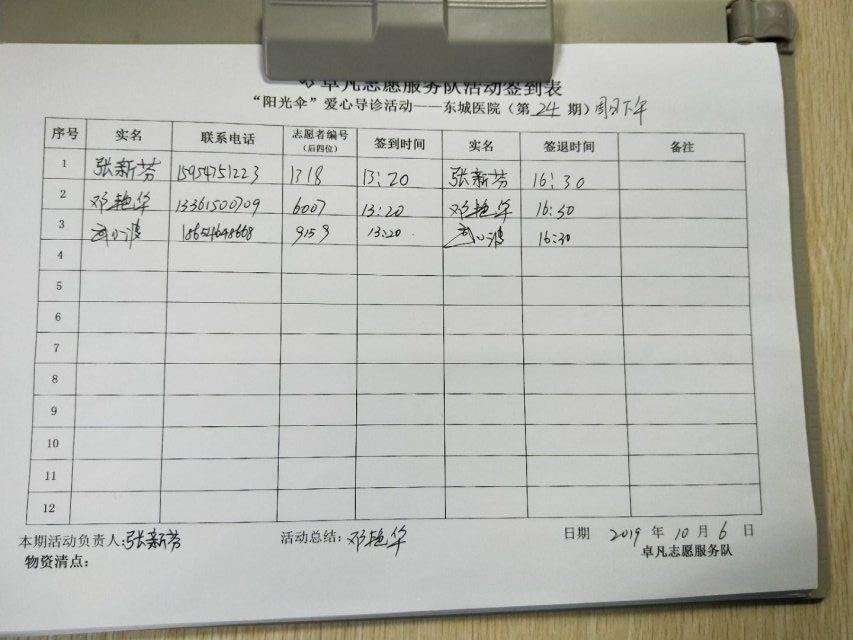 卓凡志愿服务队活动签到表
“阳光伞”爱心导诊活动——东城医院（第 24 期）周日下午
序号 实名 联系电话 志愿者编号（后四位） 签到时间 实名 签退时间 备注
1 张新芬 15954751223 1318 13:20 张新芬 16:30
2 邓艳华 13361500709 6007 13:20 邓艳华 16:30
3 9159 13:20 16:30
4
5
6
7
8
9
10
11
12
本期活动负责人:张新芬 活动总结:邓艳华 日期 2019 年 10 月 6 日
物资清点: 卓凡志愿服务队